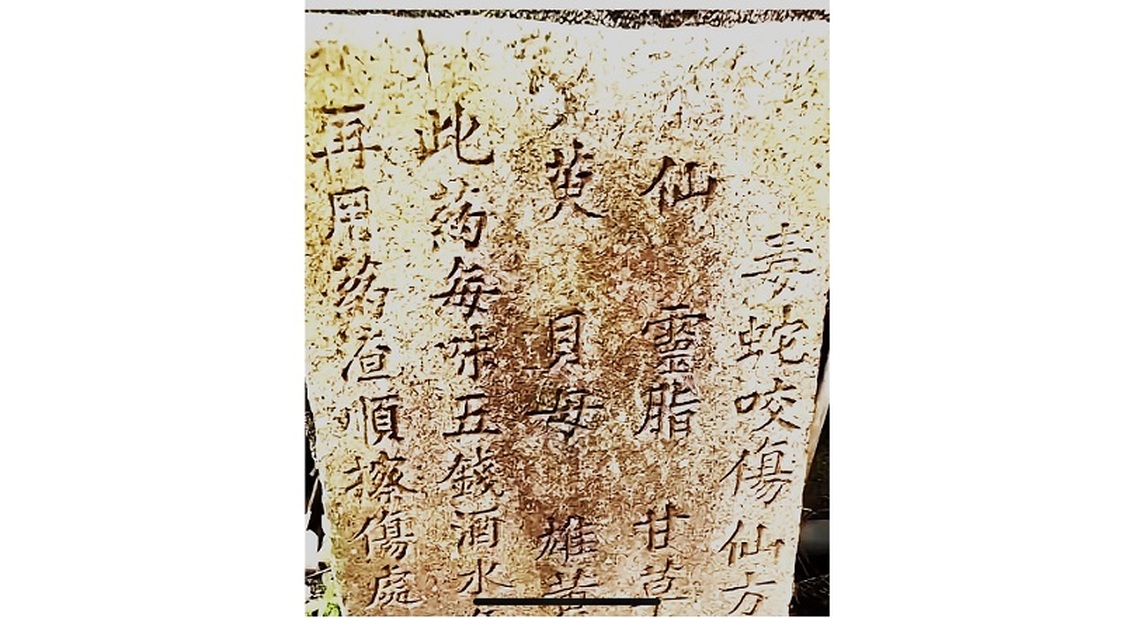 毒蛇咬傷仙方
仙 靈脂 甘草
黄 貝母 雄黄
此葯每味五錢酒水
再用葯查順擦傷處